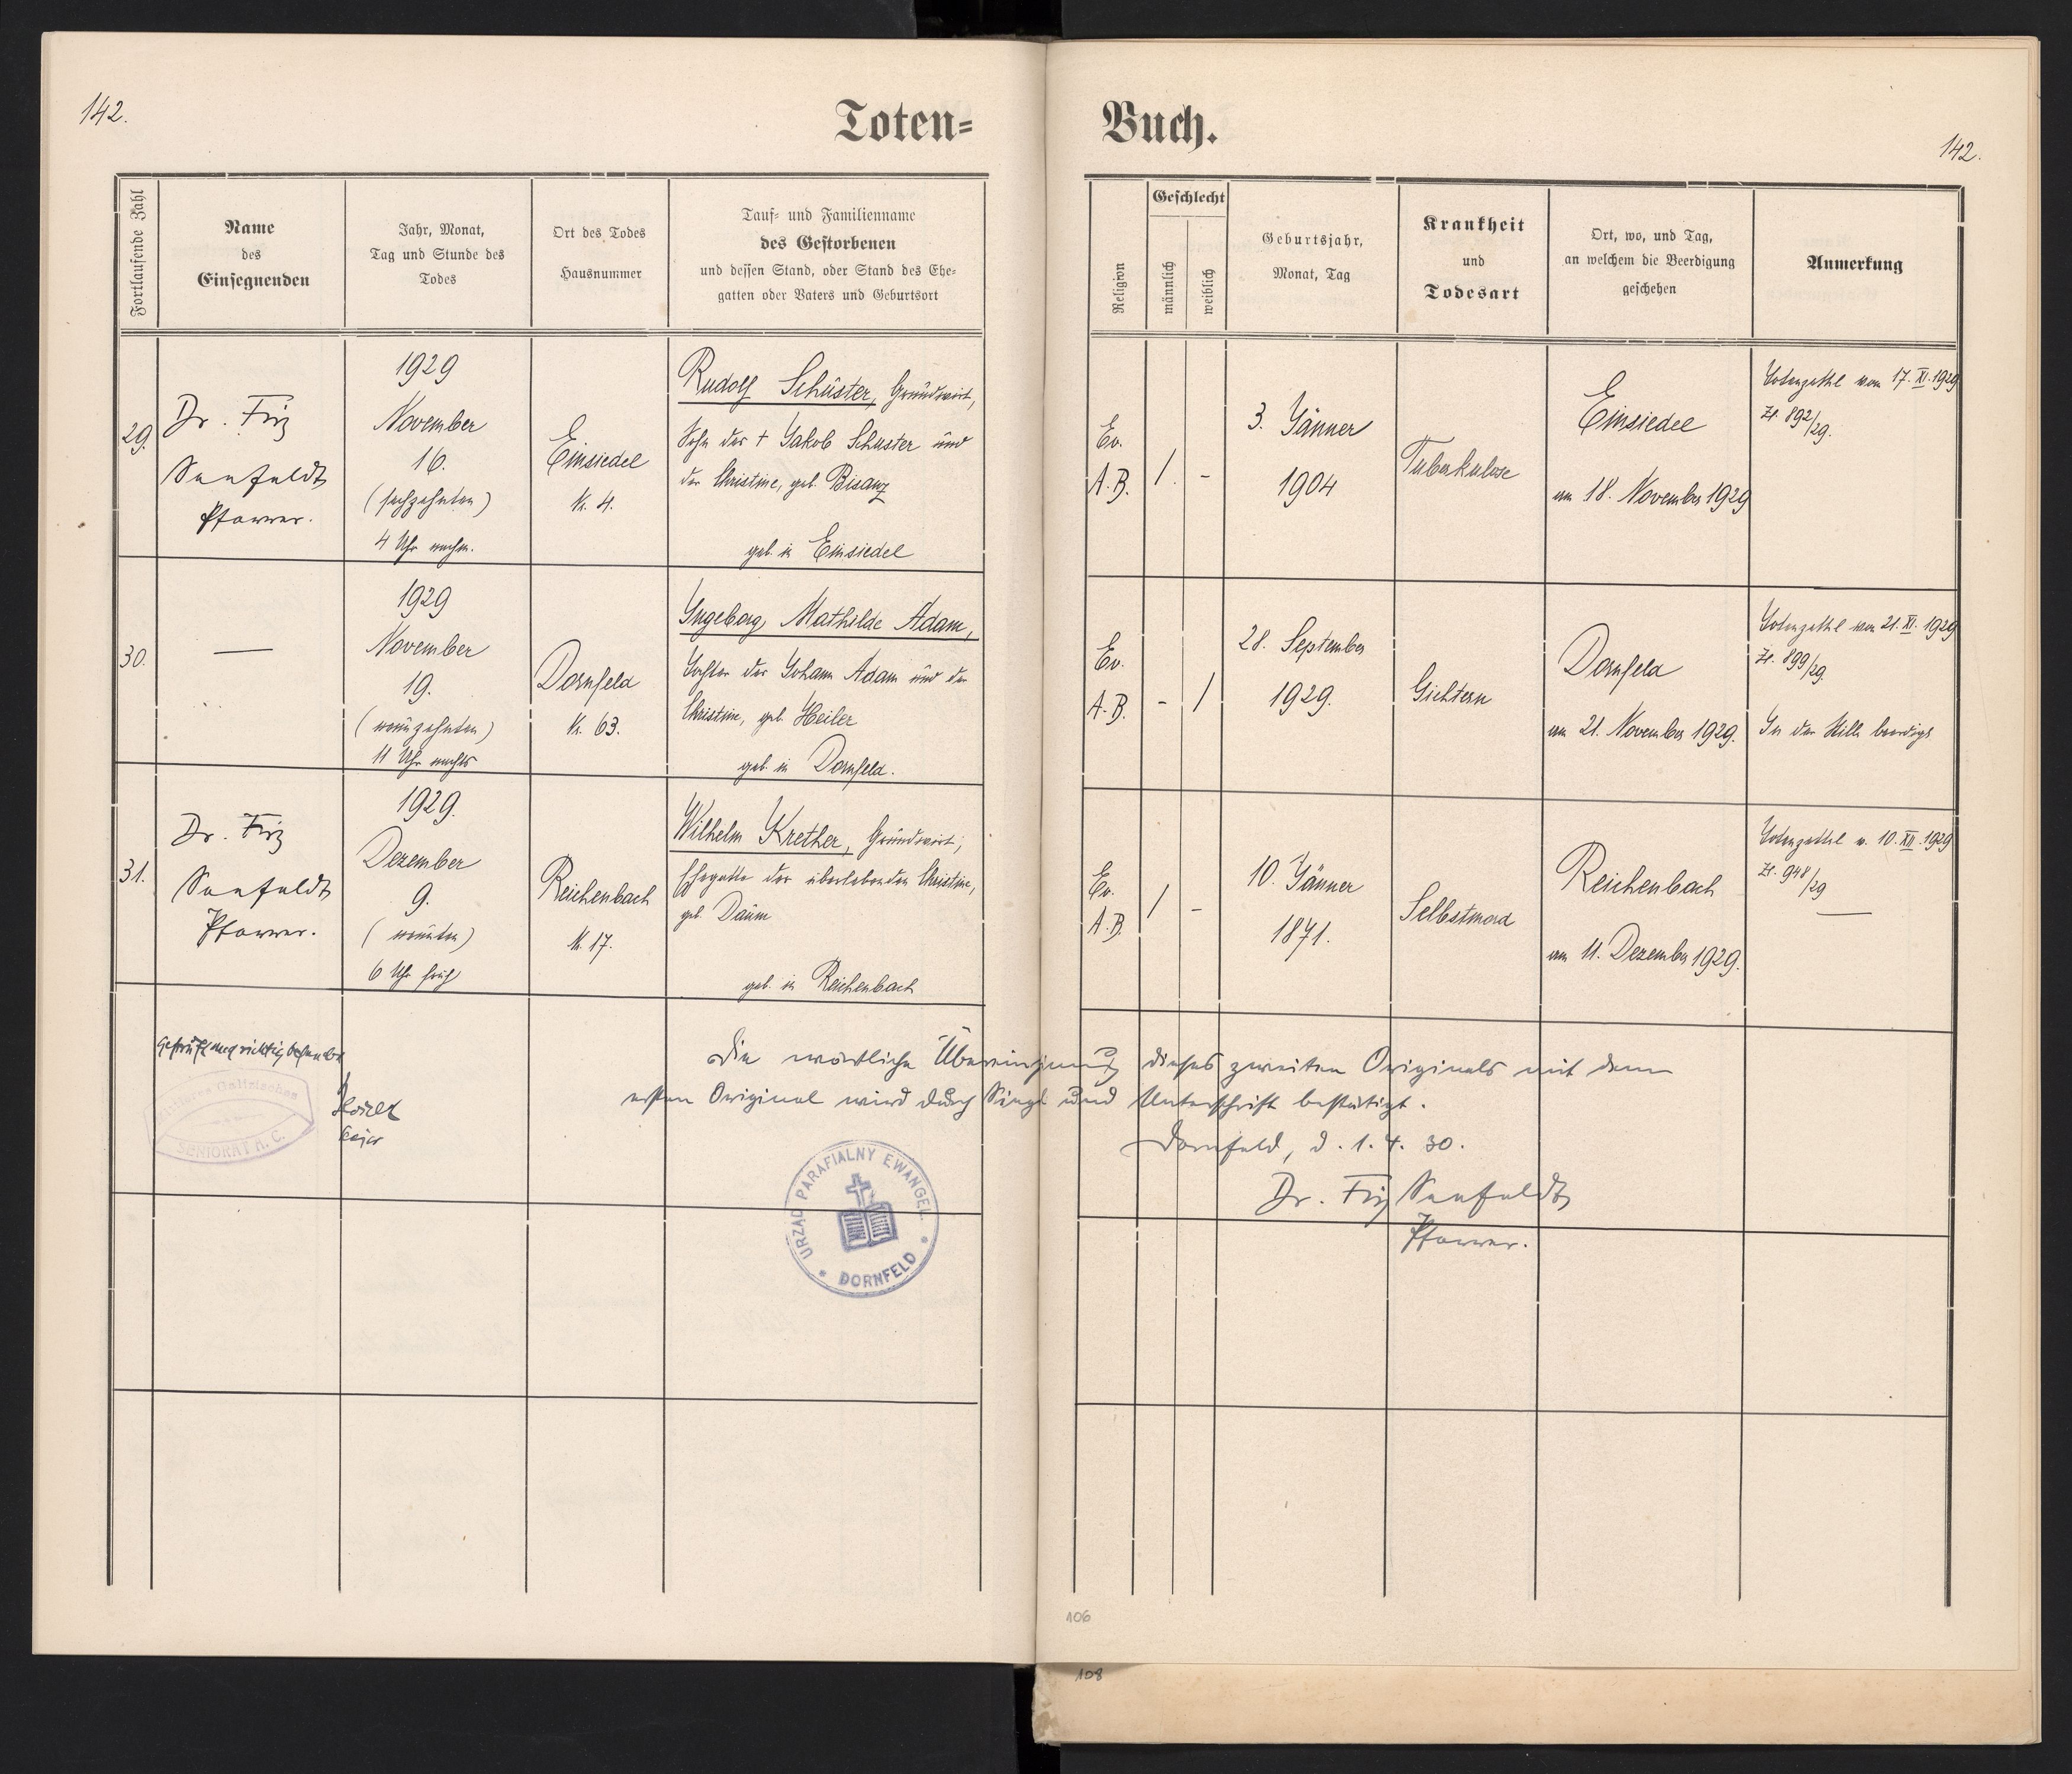 142.
Toten=
Buch.
142.
Fortlaufende Zahl
Name
des
Einsegnenden
Jahr, Monat,
Tag und Stunde des
Todes
Ort des Todes
Hausnummer
Tauf= und Familienname
des Gestorbenen
und dessen Stand, oder Stand des Ehe=
gatten oder Vaters und Geburtsort
Religion
Geschlecht
männlich
weiblich
Geburtsjahr,
Monat, Tag
Krankheit
und
Todesart
Ort, wo, und Tag,
an welchem die Beerdigung
geschehen
Anmerkung
29.
Dr. Friz
Seefeldt
Pfarrer.
1929
November
16.
(sechzehnten)
4 Uhr nachm.
Einsiedel
Nr. 4.
Rudolf Schuster, Grundwirt,
Sohn des + Jakob Schuster und
der Christine, geb. Bisanz
geb. in Einsiedel
Ev.
A.B.
1.
-
3. Jänner
1904
Tuberkulose
Einsiedel
am 18. November 1929
Totenzettel vom 17. XI. 1929
Zl. 892/29.
30.
—
1929
November
19.
(neunzehnten)
11 Uhr nachts
Dornfeld
Nr. 63.
Ingeborg Mathilde Adam,
Tochter des Johann Adam und der
Christine, geb. Heiler
geb. in Dornfeld.
Ev.
A.B.
-
1
28. September
1929.
Gichtern
Dornfeld
am 21. November 1929.
Totenzettel vom 21. XI. 1929
Zl. 899/29.
In der Stille beerdigt
31.
Dr. Friz
Seefeldt
Pfarrer.
1929.
Dezember
9.
(neunten)
6 Uhr früh
Reichenbach
Nr. 17.
Wilhelm Krether, Grundwirt,
Ehegatte der überlebenden Christine,
geb. Daum
geb. in Reichenbach
Ev.
A.B.
1
-
10. Jänner
1871.
Selbstmord
Reichenbach
am 11. Dezember 1929.
Totenzettel v. 10. XII. 1929
Zl. 948/29
—
Geprüft und richtig befunden
Galizisches
SENIORAT A. C.
Die wörtliche Übereinstimmung dieses zweiten Originals mit dem
ersten Original wird durch Siegel und Unterschrift bestätigt.
Dornfeld, d. 1. 4. 30.
Dr. Friz Seefeldt
Pfarrer.
URZĄD PARAFIALNY EWANGEL.
DORNFELD
106
108